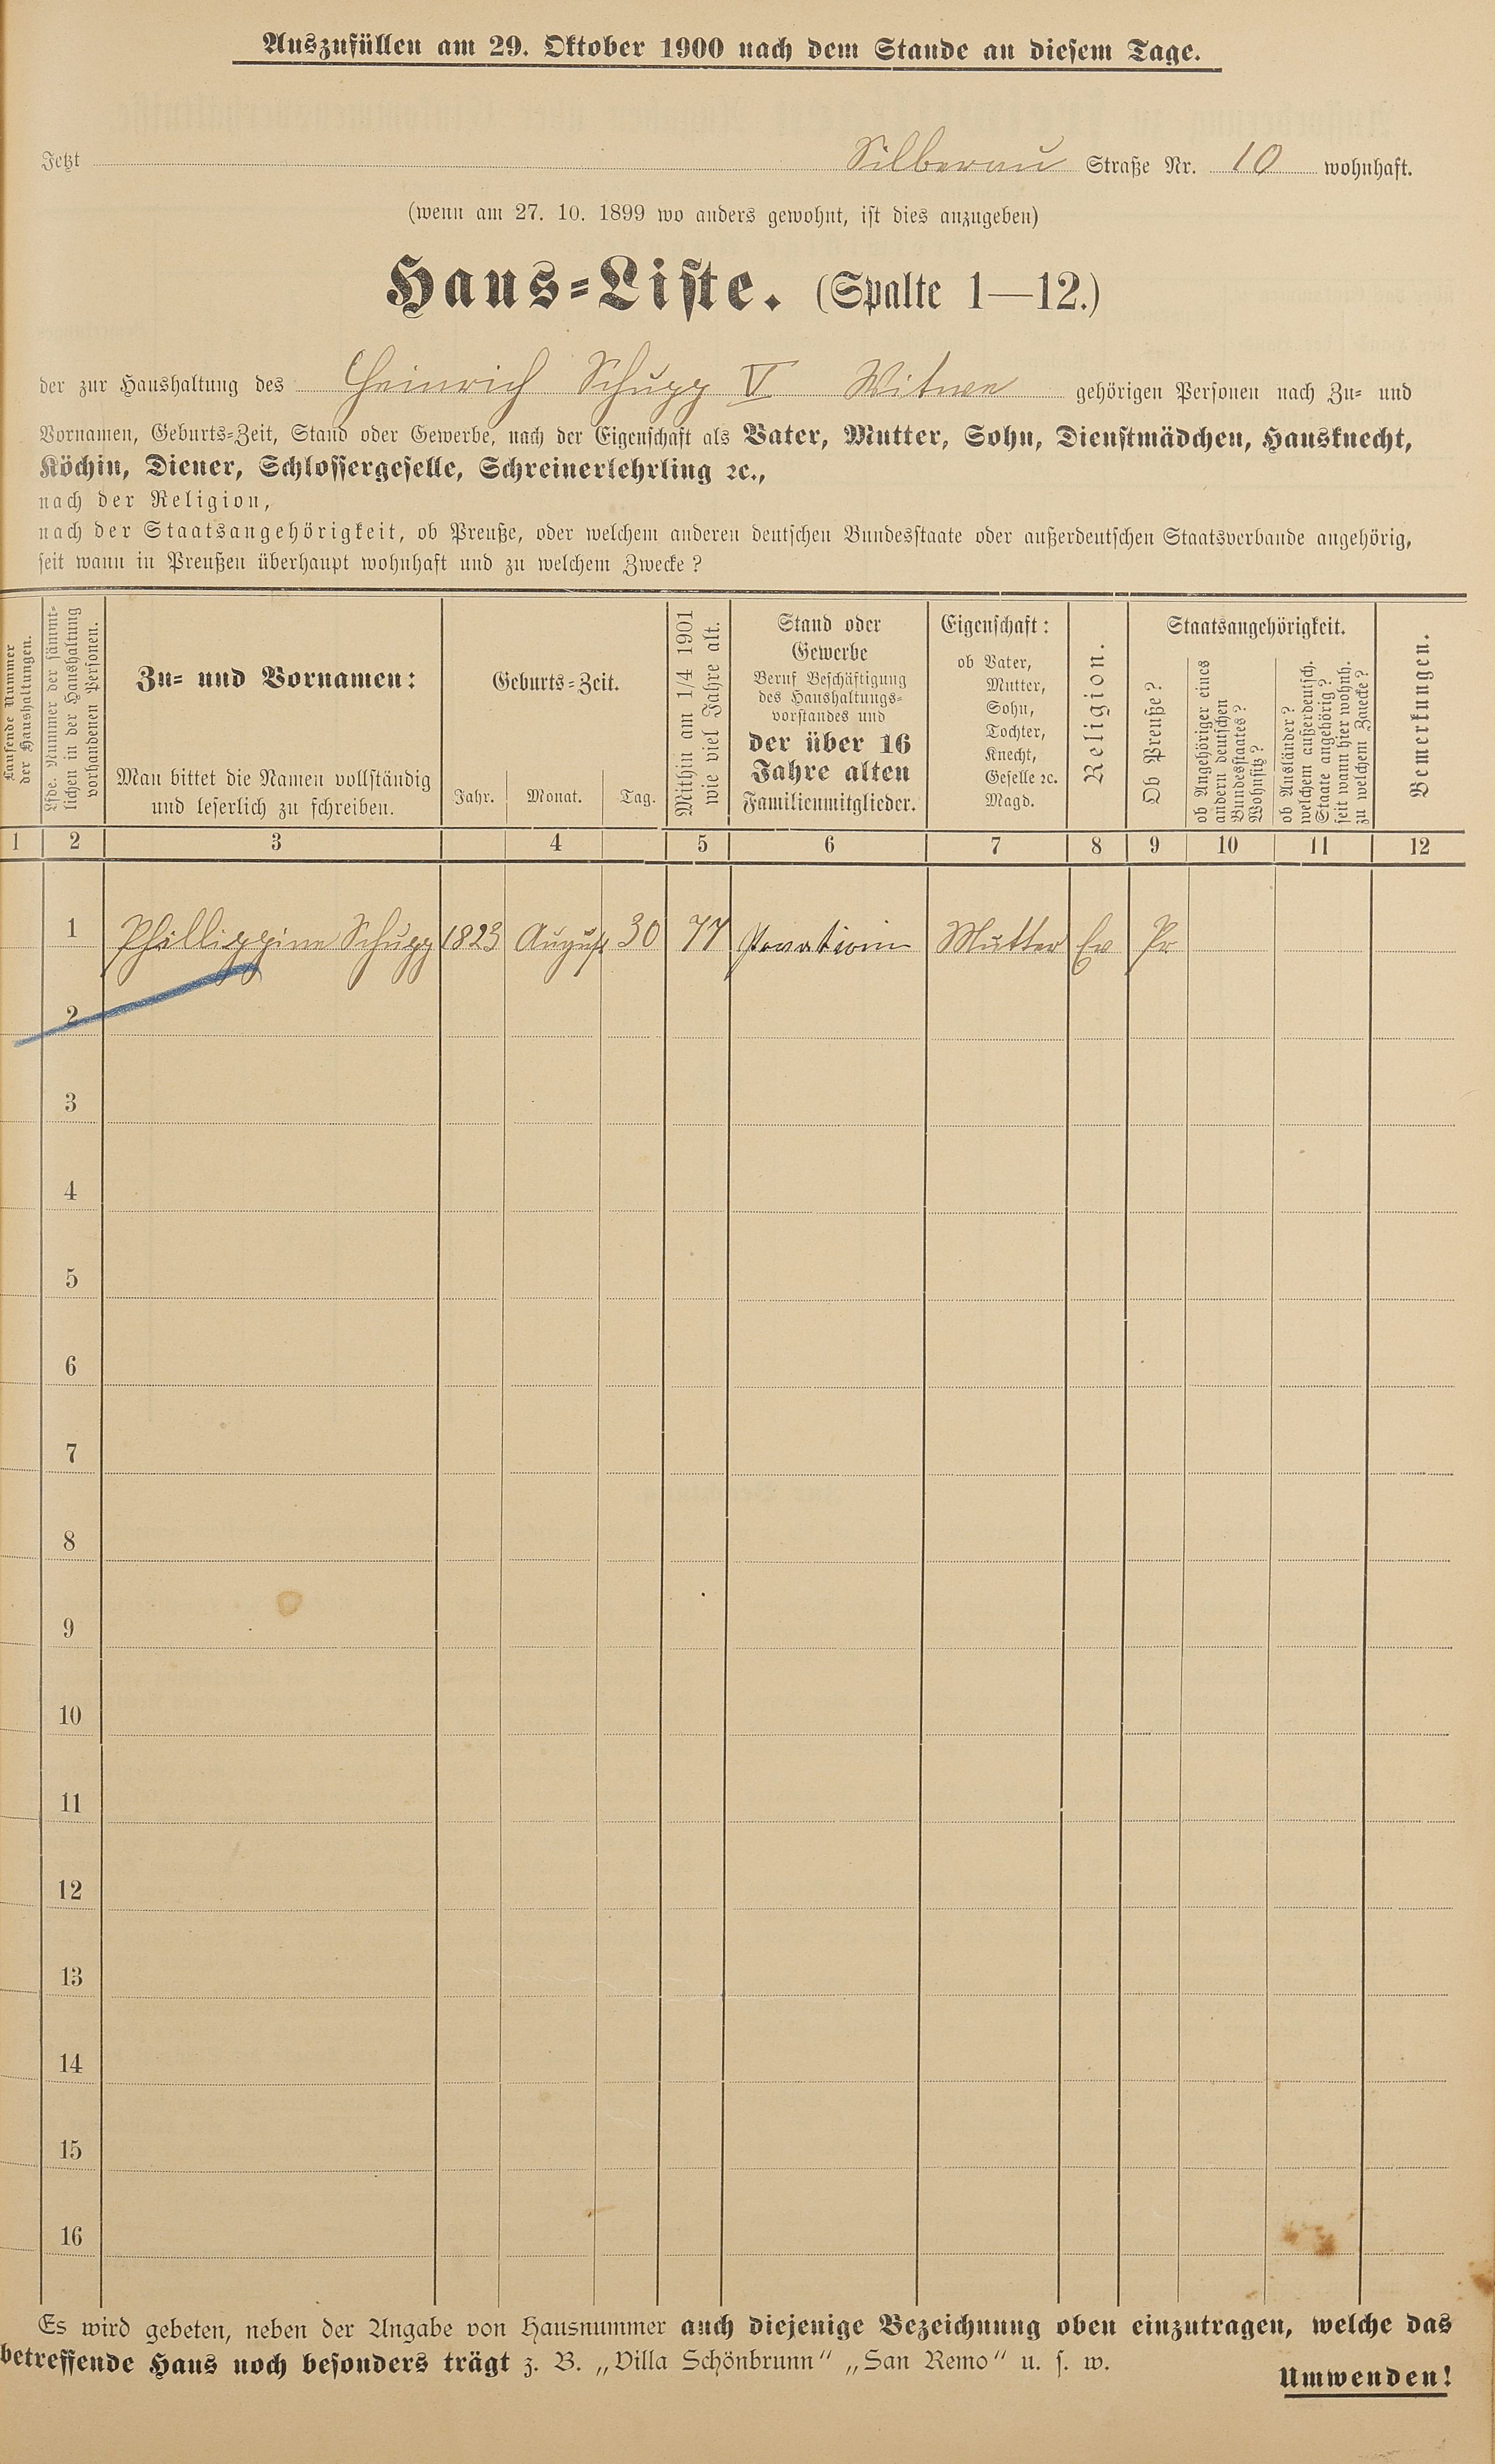 Auszufüllen am 29. Oktober 1900 nach dem Stande an diesem Tage.
Jetzt Silberau Straße Nr. 10 wohnhaft.
(wenn am 27. 10. 1899 wo anders gewohnt, ist dies anzugeben)
Haus-Liste. (Spalte 1—12.)
der zur Haushaltung des Heinrich Schupp V Witwe gehörigen Personen nach Zu- und
Vornamen, Geburts-Zeit, Stand oder Gewerbe, nach der Eigenschaft als Vater, Mutter, Sohn, Dienstmädchen, Hausknecht,
Köchin, Diener, Schlossergeselle, Schreinerlehrling ꝛc.,
nach der Religion,
nach der Staatsangehörigkeit, ob Preuße, oder welchem anderen deutschen Bundesstaate oder außerdeutschen Staatsverbande angehörig,
seit wann in Preußen überhaupt wohnhaft und zu welchem Zwecke?
Laufende Nummer
der Haushaltungen.
Lfde. Nummer der sämmt-
lichen in der Haushaltung
vorhandenen Personen.
Zu- und Vornamen:
Man bittet die Namen vollständig
und leserlich zu schreiben.
Geburts-Zeit.
Jahr. Monat. Tag.
Mithin am 1/4 1901
wie viel Jahre alt.
Stand oder
Gewerbe
Beruf Beschäftigung
des Haushaltungs-
vorstandes und
der über 16
Jahre alten
Familienmitglieder.
Eigenschaft:
ob Vater,
Mutter,
Sohn,
Tochter,
Knecht,
Geselle ꝛc.
Magd.
Religion.
Staatsangehörigkeit.
Ob Preuße?
ob Angehöriger eines
andern deutschen
Bundesstaates?
Wohnsitz?
ob Ausländer?
welchem außerdeutsch.
Staate angehörig?
seit wann hier wohnh.
zu welchem Zwecke?
Bemerkungen.
1 2 3 4 5 6 7 8 9 10 11 12
1 Phillippine Schupp 1823 August 30 77 Mutter Ev Pr
2
3
4
5
6
7
8
9
10
11
12
13
14
15
16
Es wird gebeten, neben der Angabe von Hausnummer auch diejenige Bezeichnung oben einzutragen, welche das
betreffende Haus noch besonders trägt z. B. „Villa Schönbrunn" „San Remo" u. s. w.
Umwenden!